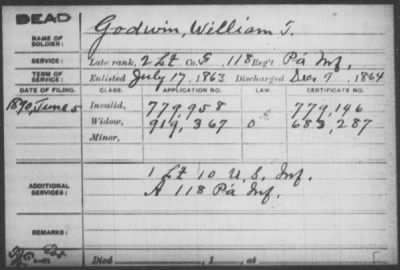 DEAD
NAME OF SOLDIER: Godwin, William T.
SERVICE: Late rank, 2 Lt Co. F, 118 Reg't Pa Inf.
TERM OF SERVICE: Enlisted July 17, 1863 Discharged Dec 7, 1864
DATE OF FILING. CLASS. APPLICATION NO. LAW. CERTIFICATE NO.
1890, June 5 Invalid, 779,958 779,146
Widow, 919,367 O 683,287
Minor,
ADDITIONAL SERVICES: 1 Lt 10 U.S. Inf.
A 118 Pa Inf.
REMARKS:
Died , 1 , at